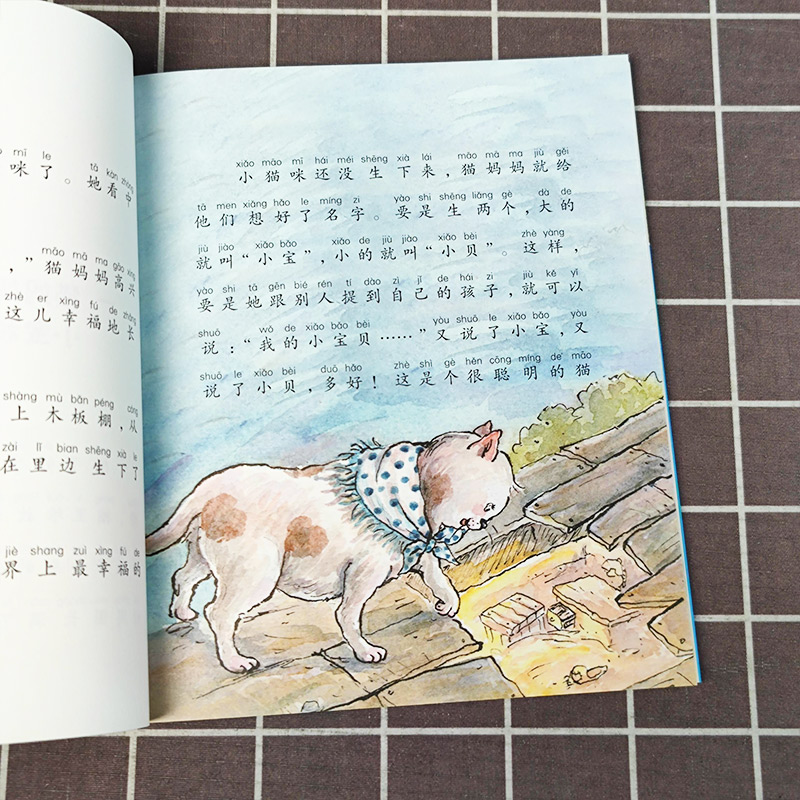 mī le tā kàn zhòng
咪了。她看中
māo mā ma gāo xìng
,”猫妈妈高兴
zhè er xìng fú de zhǎng
这儿幸福地长
shàng mù bǎn péng cóng
上木板棚,从
zài lǐ bian shēng xià le
在里边生下了
jiè shang zuì xìng fú de
界上最幸福的
xiǎo māo mī hái méi shēng xià lái māo mā ma jiù gěi
小猫咪还没生下来,猫妈妈就给
tā men xiǎng hǎo le míng zi yào shi shēng liǎng gè dà de
他们想好了名字。要是生两个,大的
jiù jiào xiǎo bǎo xiǎo de jiù jiào xiǎo bèi zhè yàng
就叫“小宝”,小的就叫“小贝”。这样,
yào shi tā gēn bié rén tí dào zì jǐ de hái zi jiù kě yǐ
要是她跟别人提到自己的孩子,就可以
shuō wǒ de xiǎo bǎo bèi yòu shuō le xiǎo bǎo yòu
说:“我的小宝贝……”又说了小宝,又
shuō le xiǎo bèi duō hǎo zhè shì gè hěn cōng míng de māo
说了小贝,多好!这是个很聪明的猫